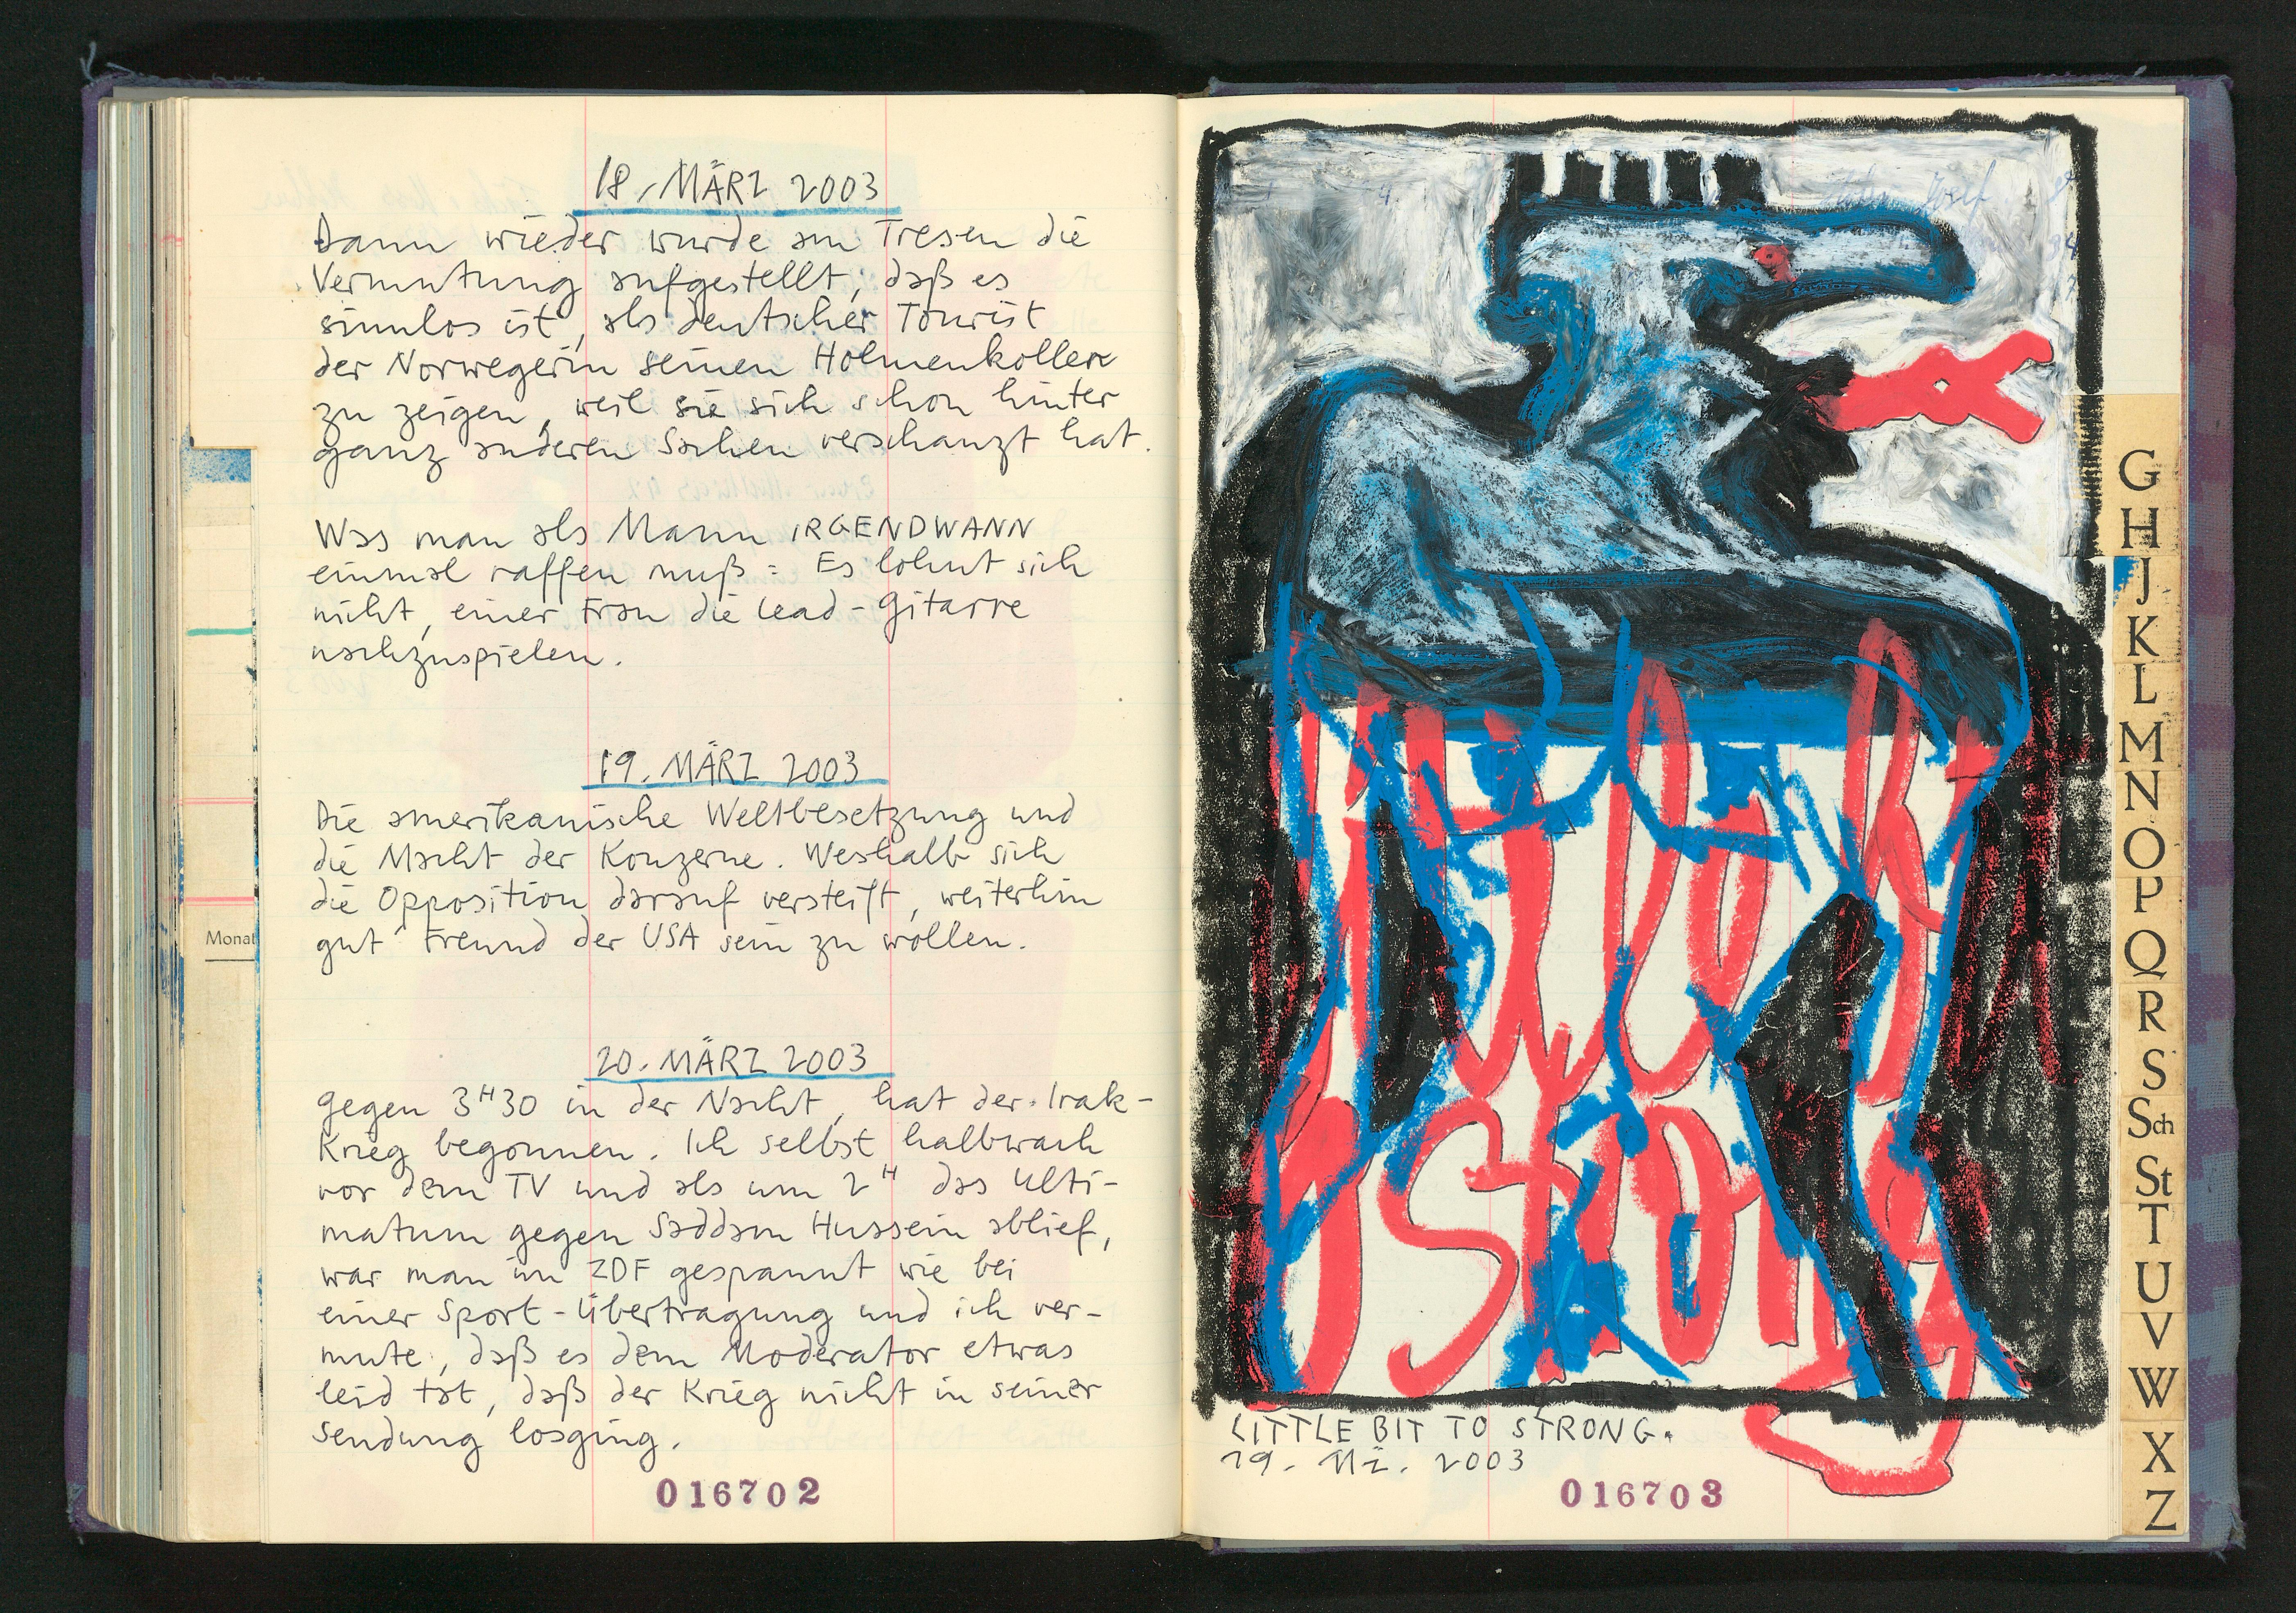 18. MÄRZ 2003
Dann wieder wurde am Tresen die
Vermutung aufgestellt, daß es
sinnlos ist, als deutscher Tourist
der Norwegerin seinen Holmenkollen
zu zeigen, weil sie sich schon hinter
ganz anderen Sachen verschanzt hat.
Was man als Mann IRGENDWANN
einmal raffen muß: Es lohnt sich
nicht, einer Frau die Lead-Gitarre
nachzuspielen.
19. MÄRZ 2003
Die amerikanische Weltbesetzung und
die Macht der Konzerne. Weshalb sich
die Opposition darauf versteift, weiterhin
gut Freund der USA sein zu wollen.
20. MÄRZ 2003
gegen 3H30 in der Nacht, hat der Irak-
Krieg begonnen. Ich selbst halbwach
vor dem TV und als um 2H das Ulti-
matum gegen Saddam Hussein ablief,
war man im ZDF gespannt wie bei
einer Sport-Übertragung und ich ver-
mute, daß es dem Moderator etwas
leid tat, daß der Krieg nicht in seiner
Sendung losging.
016702
Monat
LITTLE BIT TO STRONG.
19. Mä. 2003
016703
G
H
J
K
L
M
N
O
P
Q
R
S
Sch
St
T
U
V
W
X
Z